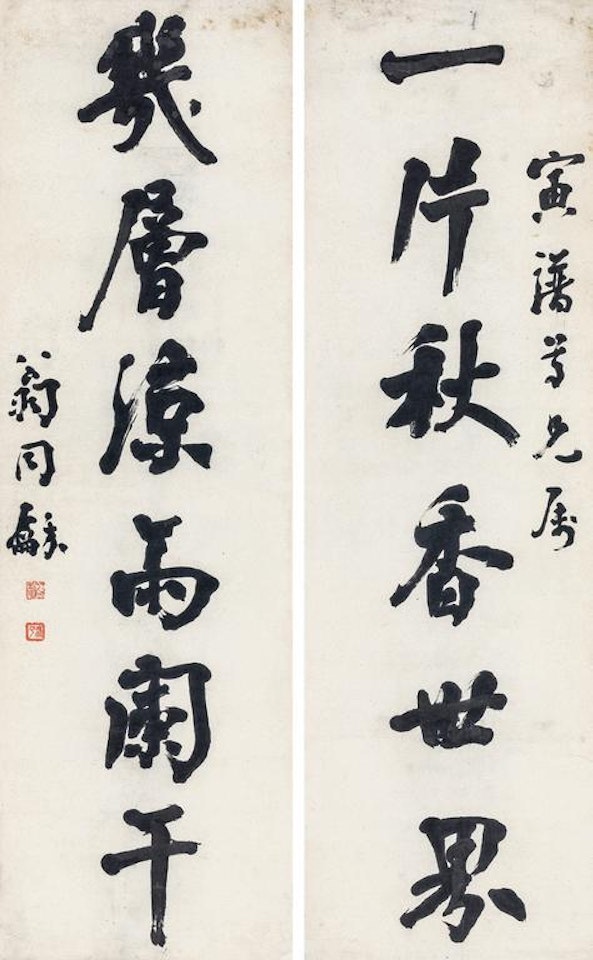 寅譜尊兄屬
一片秋香世界
幾層涼雨闌干
翁同龢